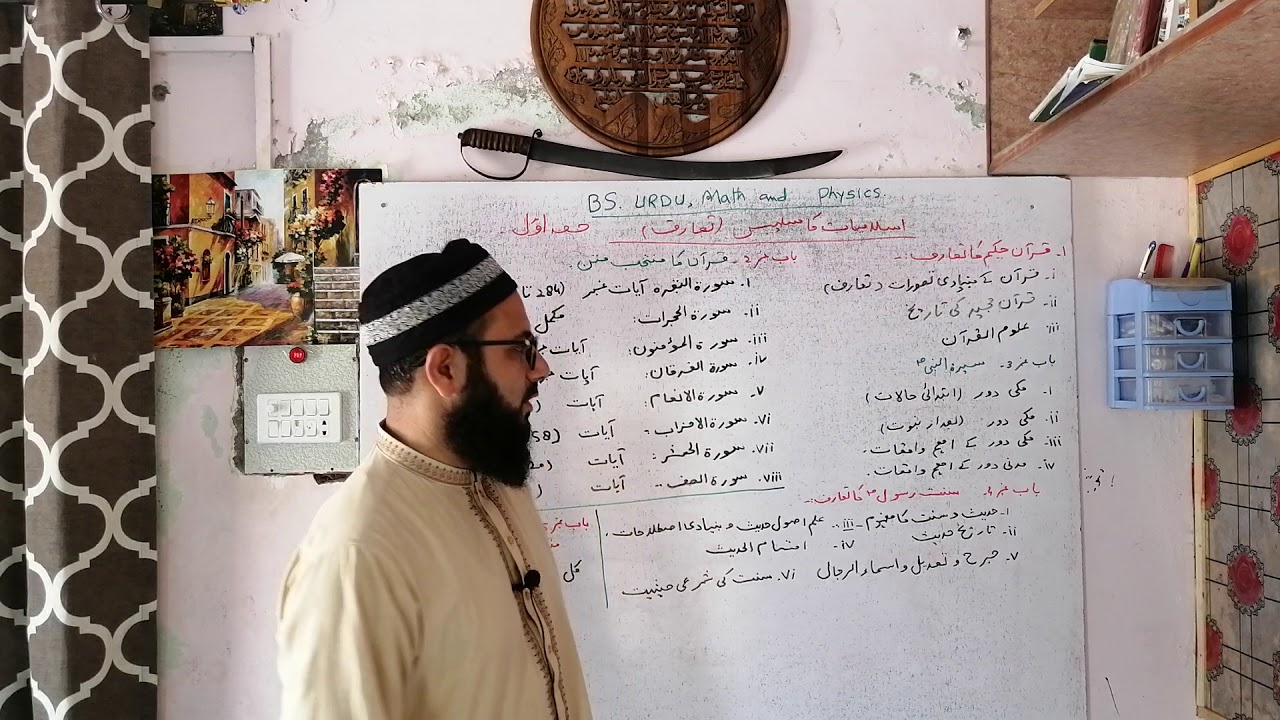 BS. URDU, Math and Physics.
اسلامیات کا سلیبس (تعارف) حصہ اوّل۔
۱۔ قرآن حکیم کا تعارف:۔
i. قرآن کے بنیادی تصورات و تعارف)
ii. قرآن مجید کی تاریخ
iii. علوم القرآن
باب نمبر 2۔ قرآن کا منتخب متن۔
۱. سورۃ البقرہ آیات نمبر (284 تا
ii. سورۃ الحجرات: مکمل
iii. سورۃ المؤمنون: آیات
iv. سورۃ الفرقان: آیات
v. سورۃ الانعام: آیات )
vi. سورۃ الاحزاب: آیات (58
vii. سورۃ الحشر: آیات )
viii. سورۃ الصف:۔ آیات )
باب نمبر 3۔ سیرۃ النبی ؐ
i. مکی دور (ابتدائی حالات)
ii. مکی دور (بعد از نبوت)
iii. مکی دور کے اہم واقعات۔
iv. مدنی دور کے اہم واقعات۔
باب نمبر 4۔ سنت رسول ؐ کا تعارف:۔
i. حدیث و سنت کا مفہوم۔ iii. علم اصول حدیث و بنیادی اصطلاحات۔
ii. تاریخ حدیث iv. اقسام الحدیث
v. جرح و تعدیل و اسماء الرجال vi. سنت کی شرعی حیثیت
باب نمبر
کل